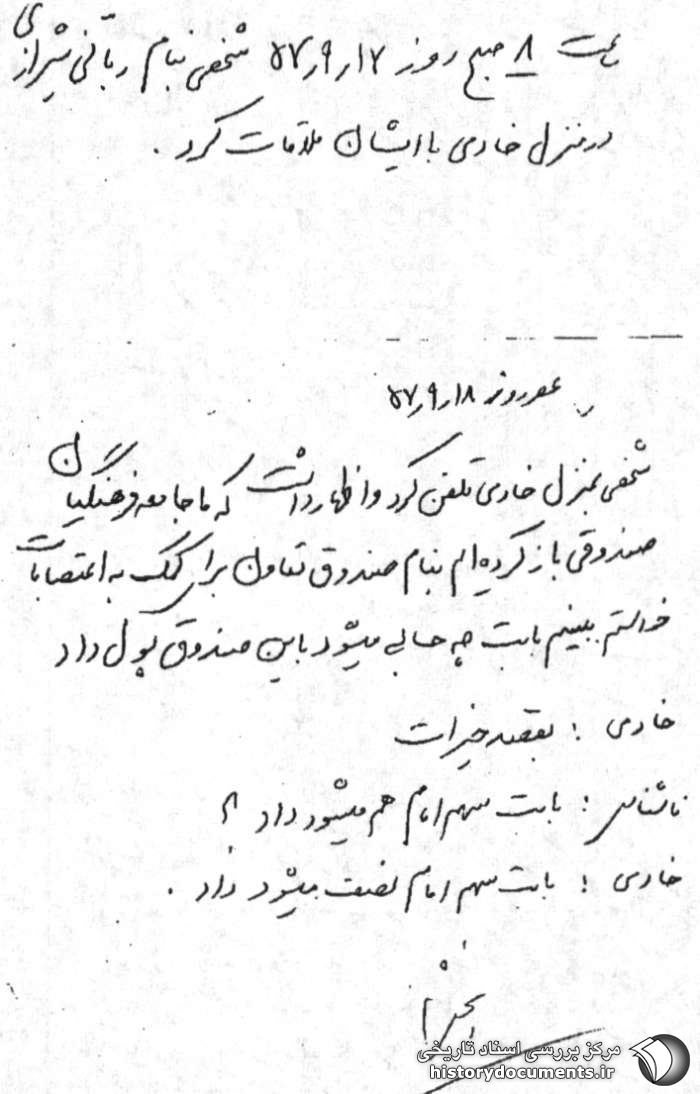 ساعت ۸ صبح روز ۵۷٫۹٫۱۷ شخصی بنام ربانی شیرازی
در منزل خادمی با ایشان ملاقات کرد.
عصر روز ۵۷٫۹٫۱۸
شخصی بمنزل خادمی تلفن کرد و اظهار داشت که ما جامعه فرهنگیان
صندوقی باز کرده‌ایم بنام صندوق تعاون برای کمک به اعتصابات
خواستم ببینم بابت چه حسابی میشود باین صندوق پول داد
خادمی : بقصد خیرات
ناشناس : بابت سهم امام هم میشود داد ؟
خادمی : بابت سهم امام نصف میشود داد .
مرکز بررسی اسناد تاریخی
historydocuments.ir